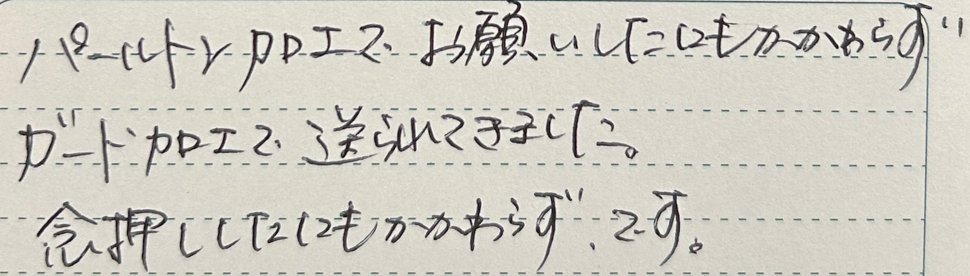 パールトン加工で、お願いしたにもかかわらず
ガード加工で、送られてきました。
念押ししたにもかかわらず、です。